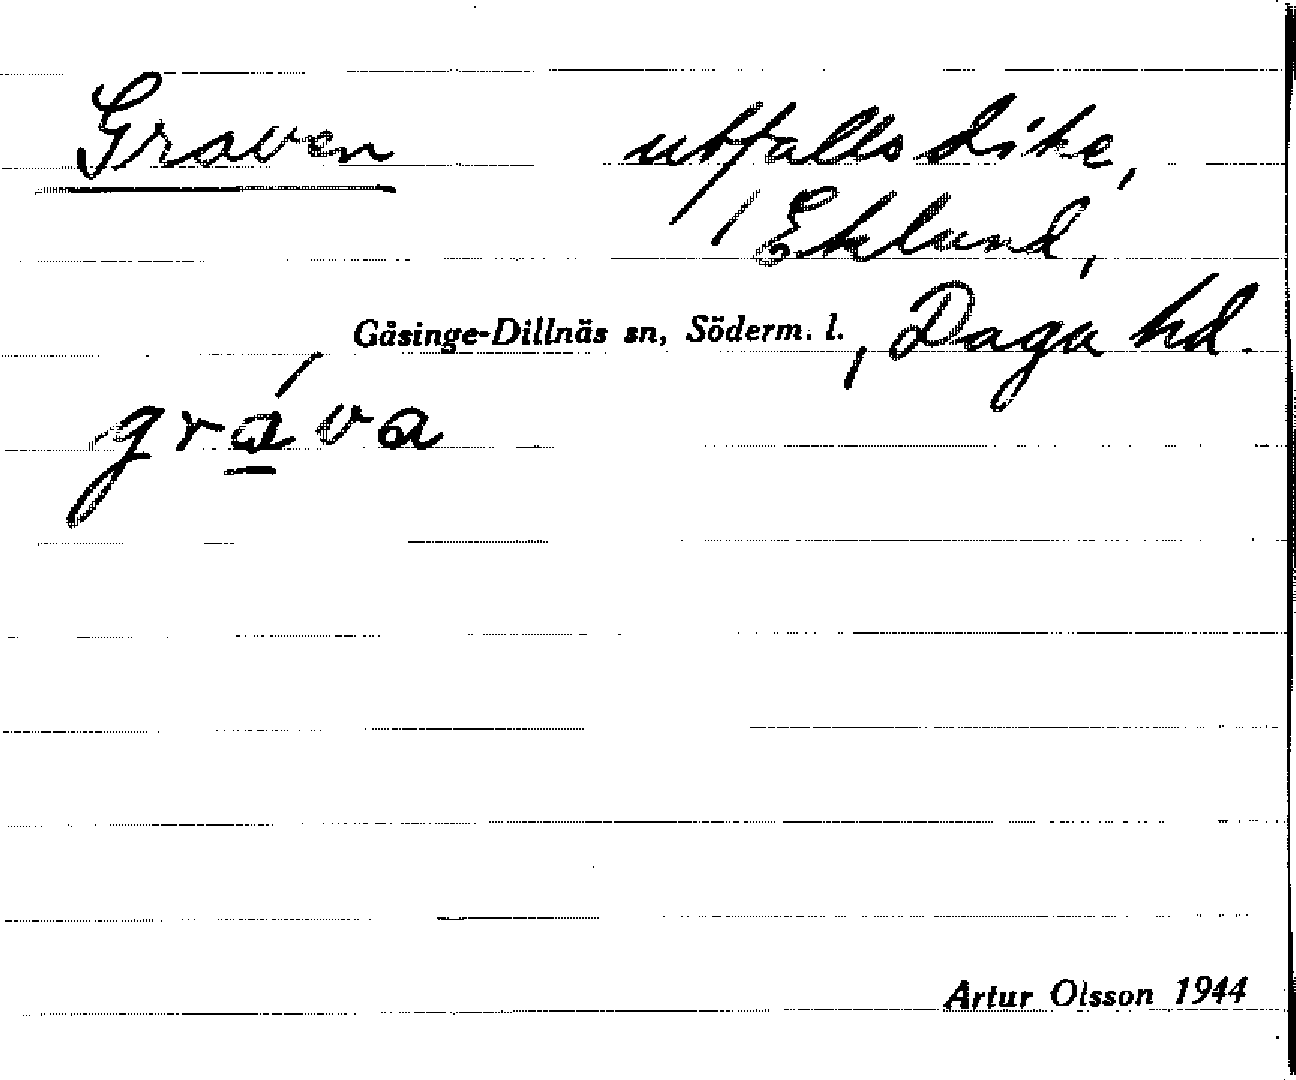 Graven utfallsdike,
/ Eklund,
Gåsinge-Dillnäs sn, Söderm. l., Daga hd.
gráva
Artur Olsson 1944